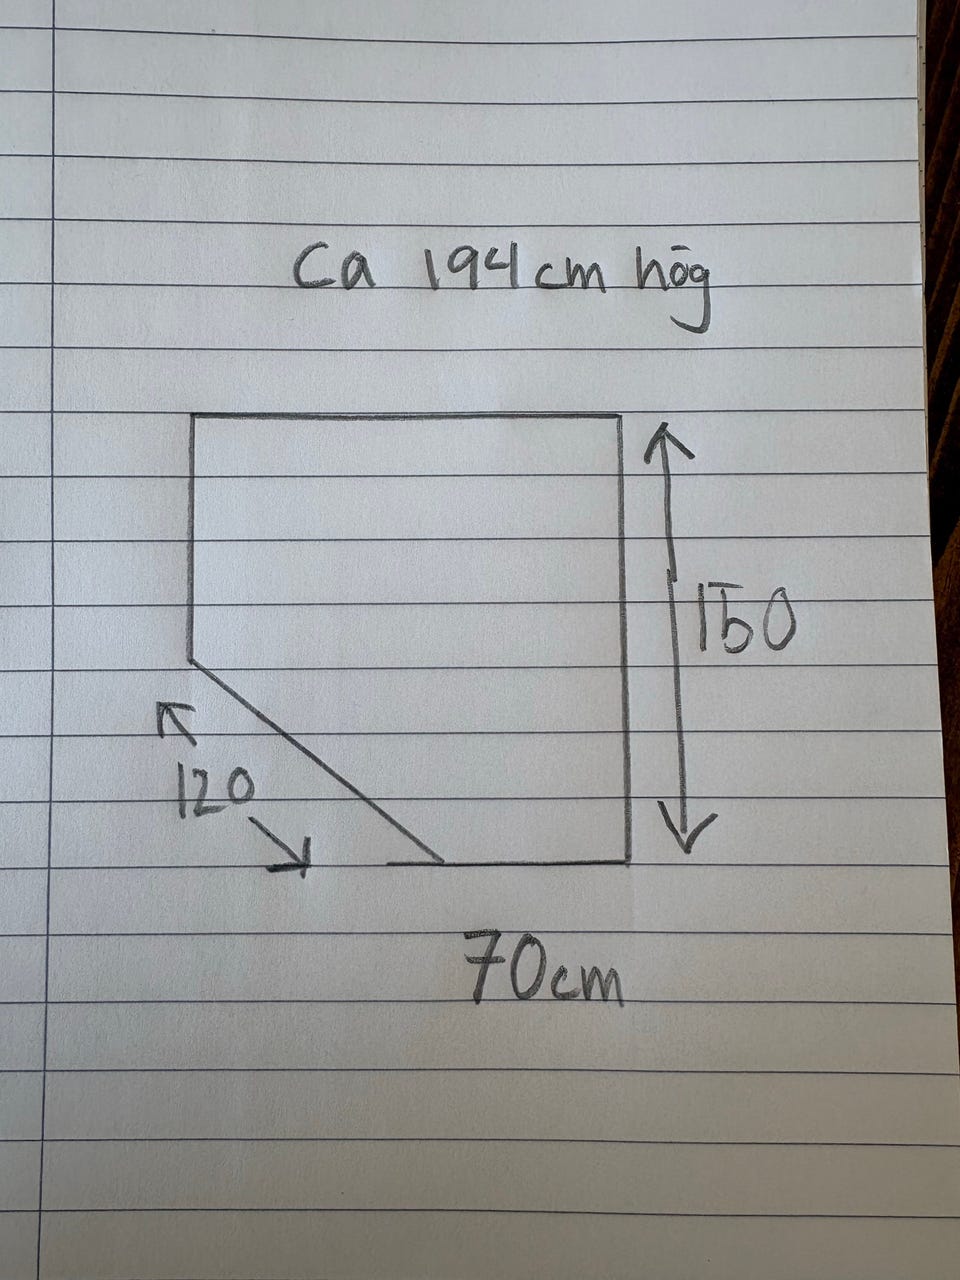 Ca 194 cm hög
150
120
70cm